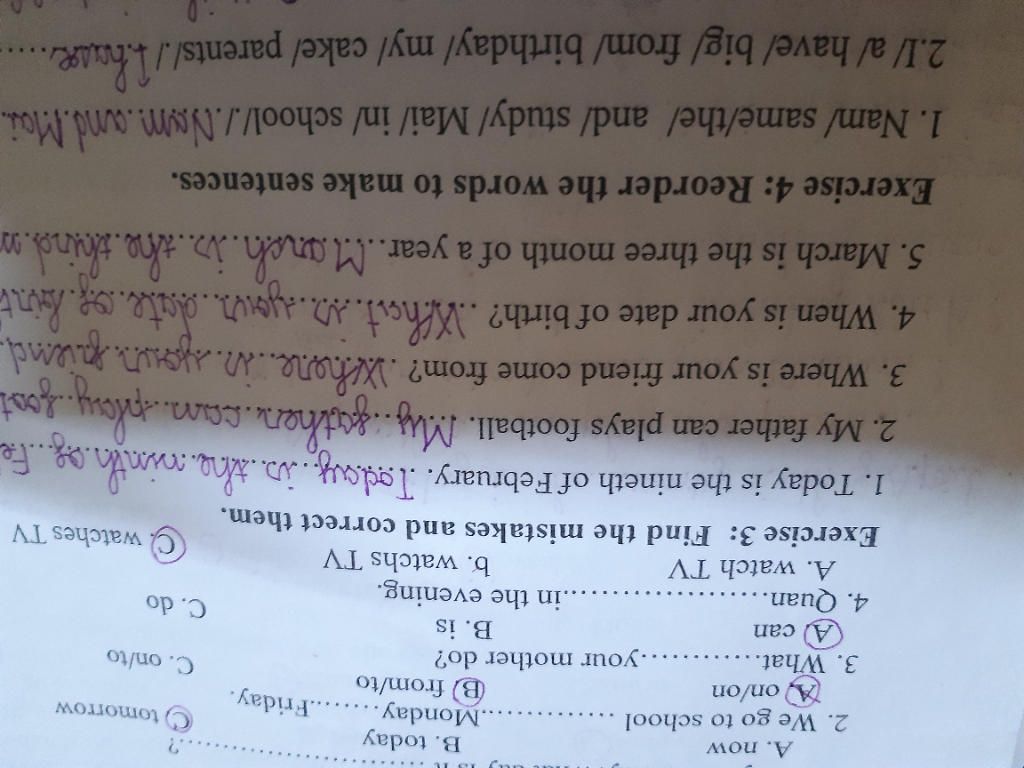 A. now B. today C. tomorrow
2. We go to school ...............Monday.........Friday.
A. on/on B. from/to C. on/to
3. What.............your mother do?
A. can B. is C. do
4. Quan......................in the evening.
A. watch TV b. watchs TV C. watches TV
Exercise 3: Find the mistakes and correct them.
1. Today is the nineth of February. Today is the ninth of Fe
2. My father can plays football. My father can play foot
3. Where is your friend come from? Where is your friend
4. When is your date of birth? What is your date of birt
5. March is the three month of a year. March is the third
Exercise 4: Reorder the words to make sentences.
1. Nam/ same/the/ and/ study/ Mai/ in/ school// Nam and Mai
2.I/ a/ have/ big/ from/ birthday/ my/ cake/ parents// I have